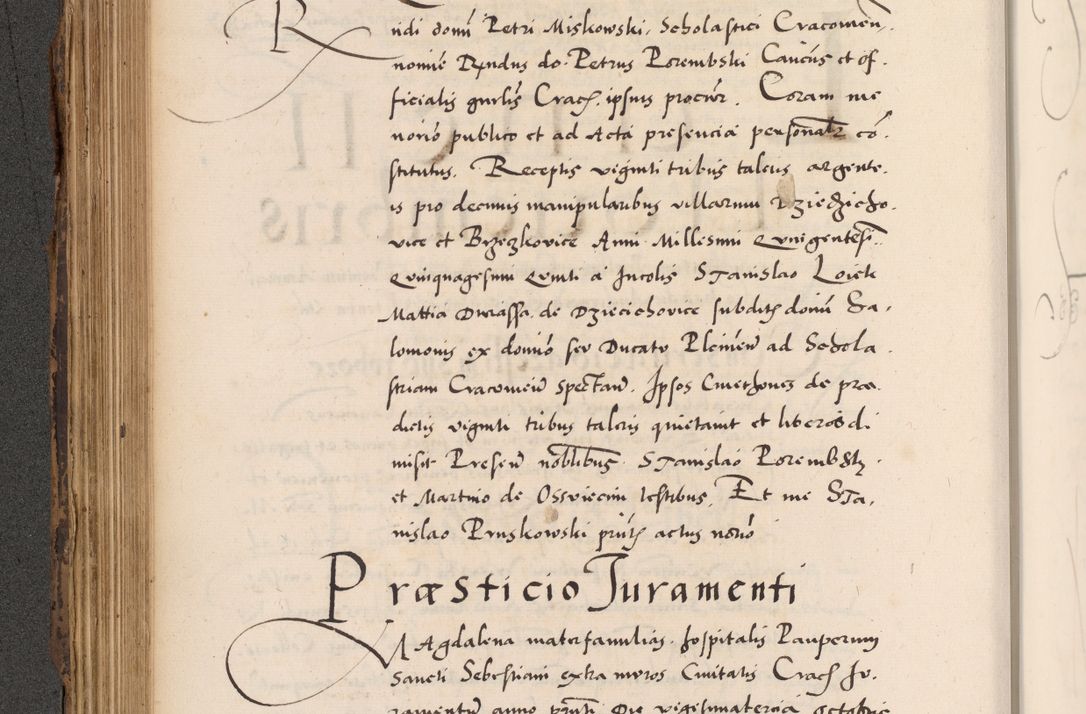 R nidi domi Petri Miskowski, Scholastici Cracovien,
nomie Rndus do. Petrus Porembski Canōus et of.
ficialis gnrlis Crac. ipsius procur. Coram me
norio publico et ad Acta presencia personalr cō.
stitutus. Receptis viginti tribus taleris argente.
is pro decimis manipularibus villarum Dzieżicho.
vice et Brzezkovice Anni Millesimi Quingentesi.
Quinquagesimi Quinti a Incolis Stanislao Loiek
Mattia Durassa de Dzieciehovice subditis domi Sa,
lomonis ex domio seu Ducatu Plciven ad Schola
striam Cracovien spectan. Ipsos Cmethones de præ.
dictis viginti tribus taleris quietavit et liberos di
misit Presen noblibus Stanislao Porembsky.
et Martino de Osswiecim testibus, Et me Sta,
nislao Pruskowski prnti actus noriō
Præsticio Juramenti
MAgdalena materfamilias hospitalis Pauperum
Sancti Sebestiani extra muros Civitatis Crac Ju.
ramentum anno prnti Die vigesimatercia octobris